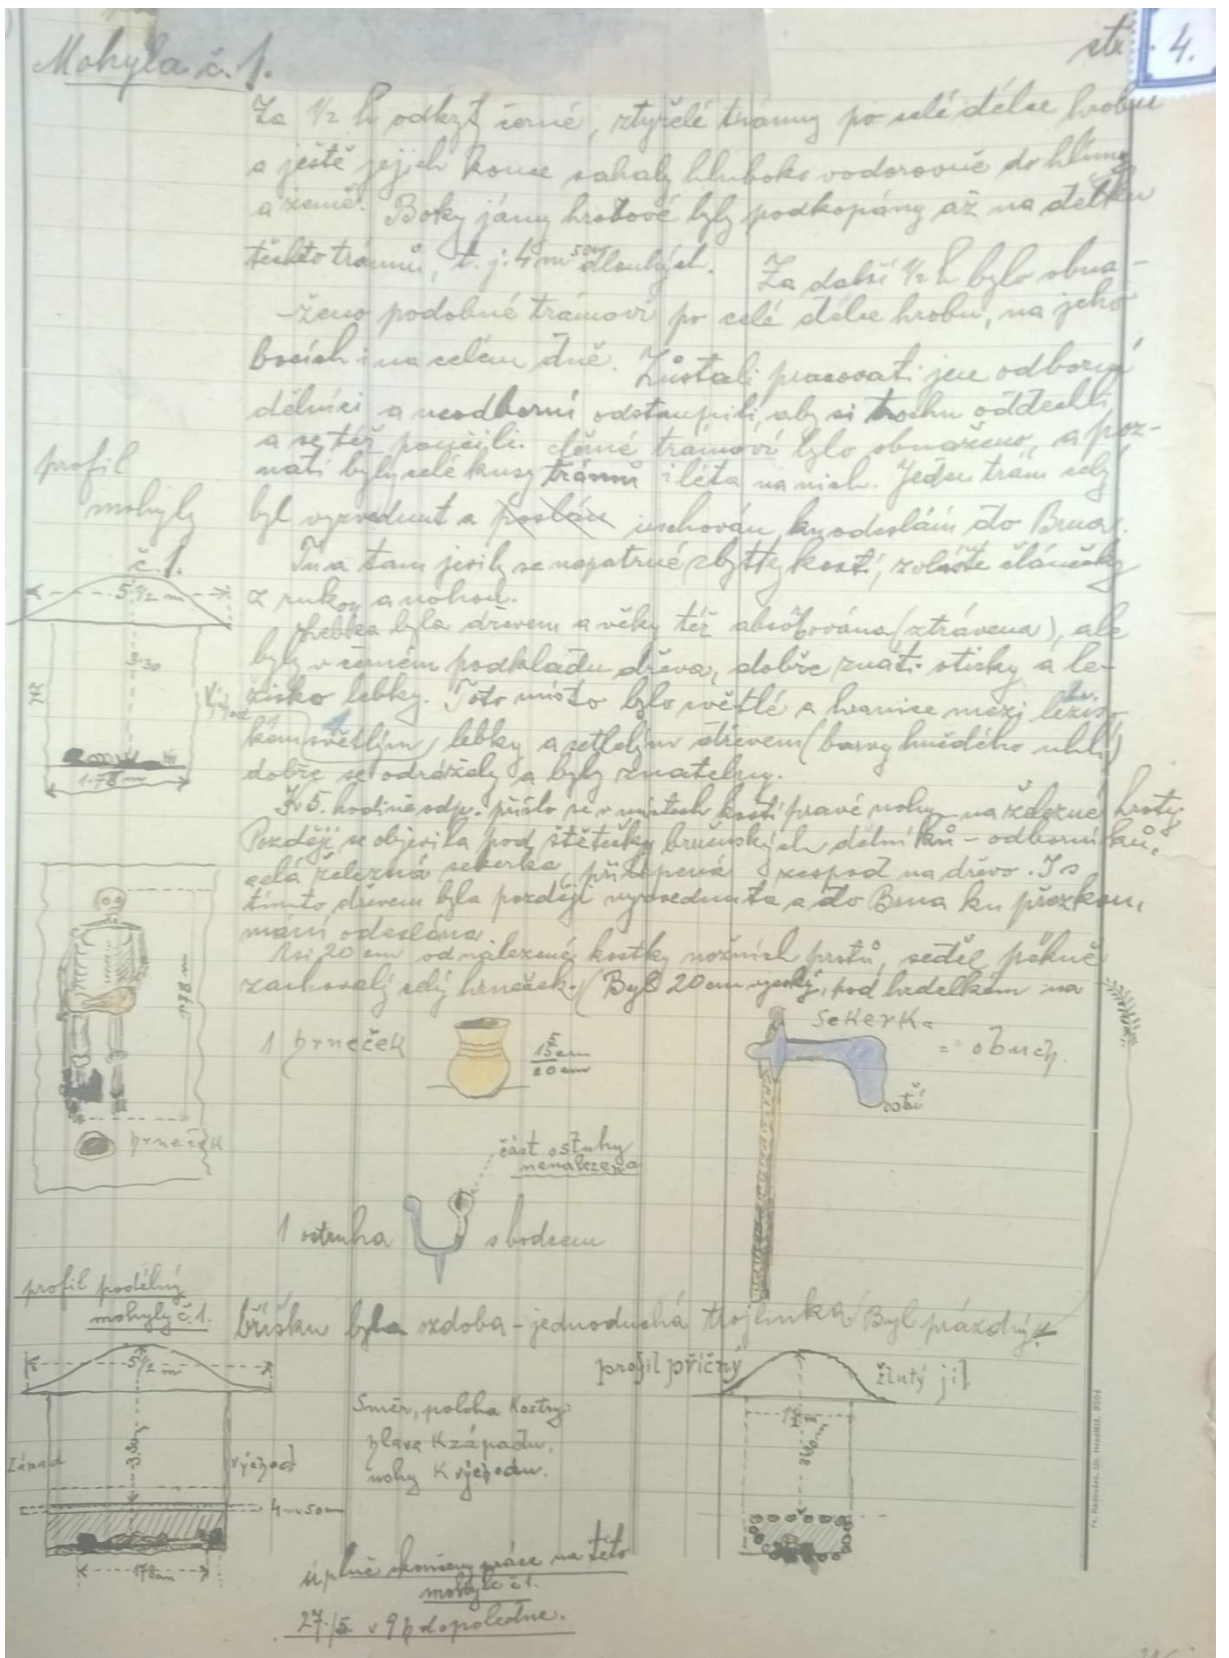 Mohyla č. 1.
str. 4.
Za 1/2 h odkryt černé, ztyřelé trámy po celé délce hrobu
a ještě jejich konce sahaly hluboko vodorovně do hlíny
a země. Boky jámy hrobové byly podkopány až na délku
těchto trámů, t. j. 4 m 50 cm dlouhých. Za další 1/2 h bylo obna-
-ženo podobné trámoví po celé délce hrobu, na jeho
bocích i na celém dně. Zůstali pracovati jen odborní
dělníci a neodborní odstoupili, aby si trochu oddechli,
a se též poučili. Černé trámoví bylo obnaženo, a poz-
nati byly celé kusy trámů i léta na nich. Jeden trám celý
byl vyzvednut a poslán uschován, ku odeslání do Brna.
Tu a tam jevily se nepatrné zbytky kostí, zvláště článečky
z rukou a nohou.
Lebka byla dřevem a věky též absorbována (ztrávena), ale
byly v černém podkladu dřeva, dobře znáti otisky a le-
žisko lebky. Toto místo bylo světlé a hranice mezi ležis-
kem světlým lebky a setlelým dřevem (barvy hnědého uhlí)
dobře se odrážely a byly znatelny.
K 5. hodině odp. přišlo se v místech kostí pravé nohy na železné hroty.
Později se objevila pod štětečky brněnských dělníků - odborníků,
celá železná sekerka, přilepená zespod na dřevo. I s
tímto dřevem byla později vyzvednuta a do Brna ku přezkou-
mání odeslána.
Asi 20 cm od nalezené kostky nožních prstů, seděl pěkně
zachovalý celý hrneček. (Byl 20 cm vysoký, pod hrdelkem na
profil
mohyly
č. 1.
5 1/2 m
3·30
Východ
1·78 m
178 m
hrneček
1 hrneček
15 cm
20 cm
Sekerka
= obuch.
ostří
část ostruhy
nenalezena
1 ostruha s bodcem
bříšku byla ozdoba - jednoduchá trojlinka. Byl prázdný.
profil podélný
mohyly č. 1.
5 1/2 m
Západ
východ
4 m 50 cm
178 cm
Směr, poloha Kostry:
hlava K západu,
nohy K východu.
profil příčný
žlutý jíl
úplně skončeny práce na této
mohyle č. 1.
27./5. v 9 h dopoledne.